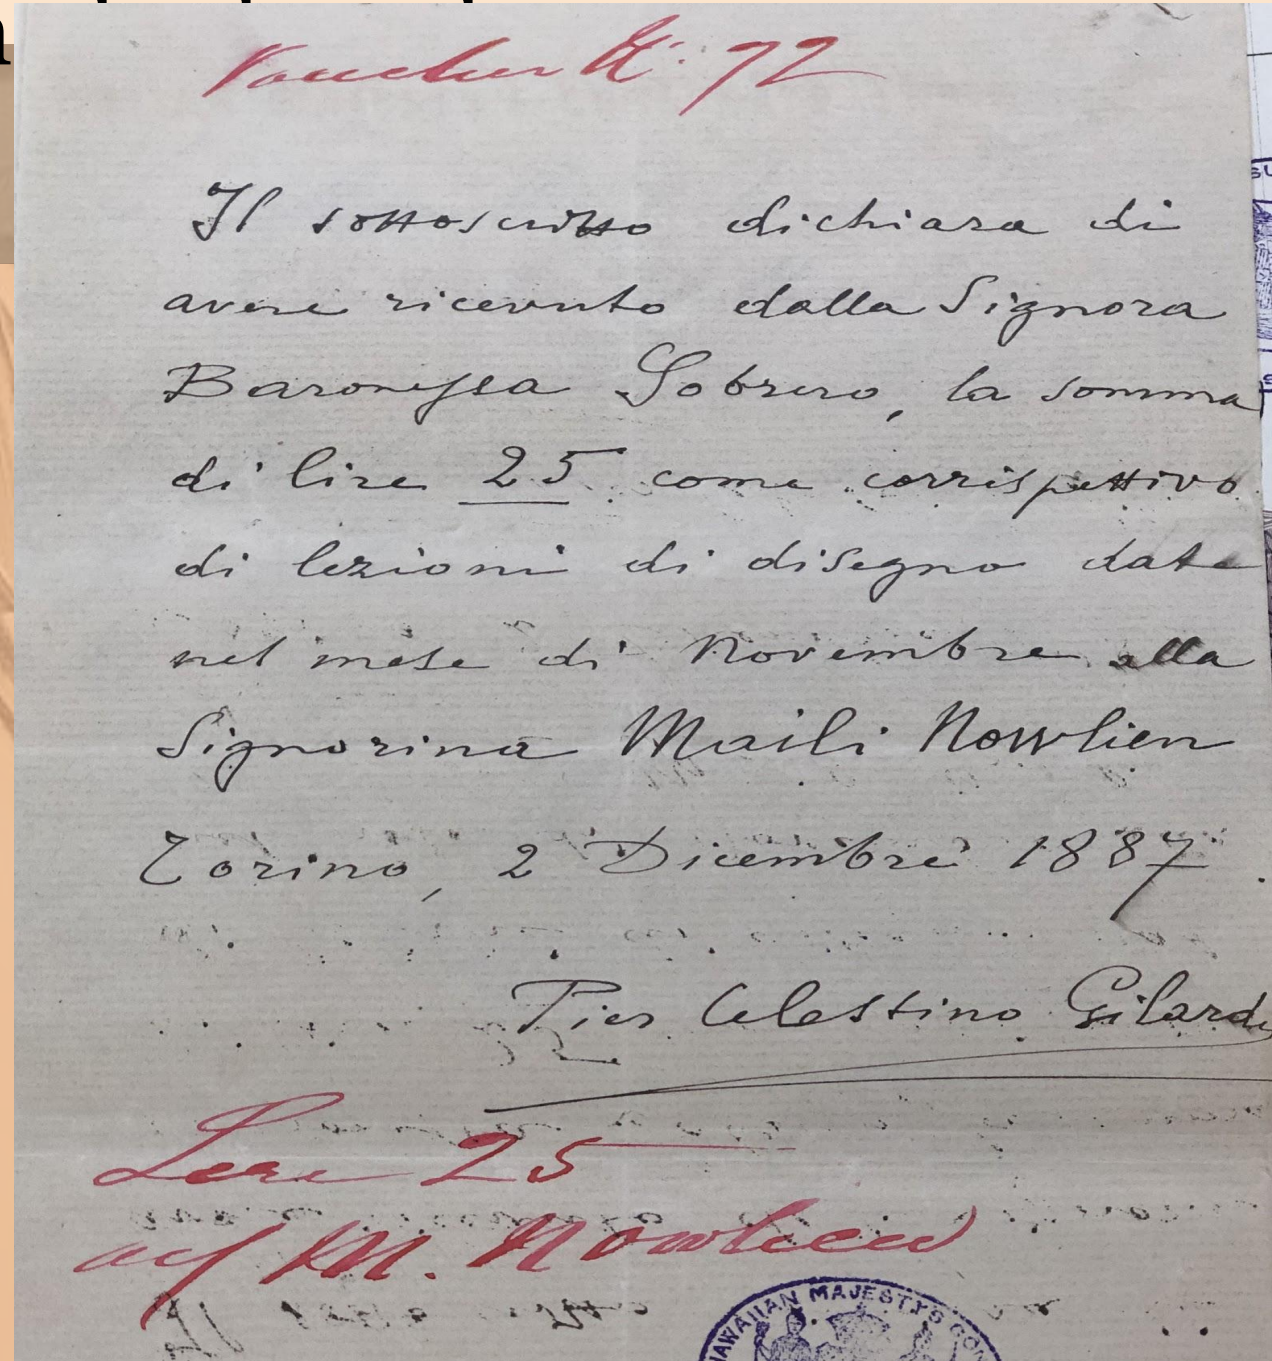 Voucher N. 72
Il sottoscritto dichiara di
avere ricevuto dalla Signora
Baronessa Sobrero, la somma
di lire 25 come corrispettivo
di lezioni di disegno date
nel mese di Novembre alla
Signorina Maili Nowlien
Torino, 2 Dicembre 1887.
Pier Celestino Gilardi
Lere 25
M. Nowlien
HAWAIIAN MAJESTYS CON